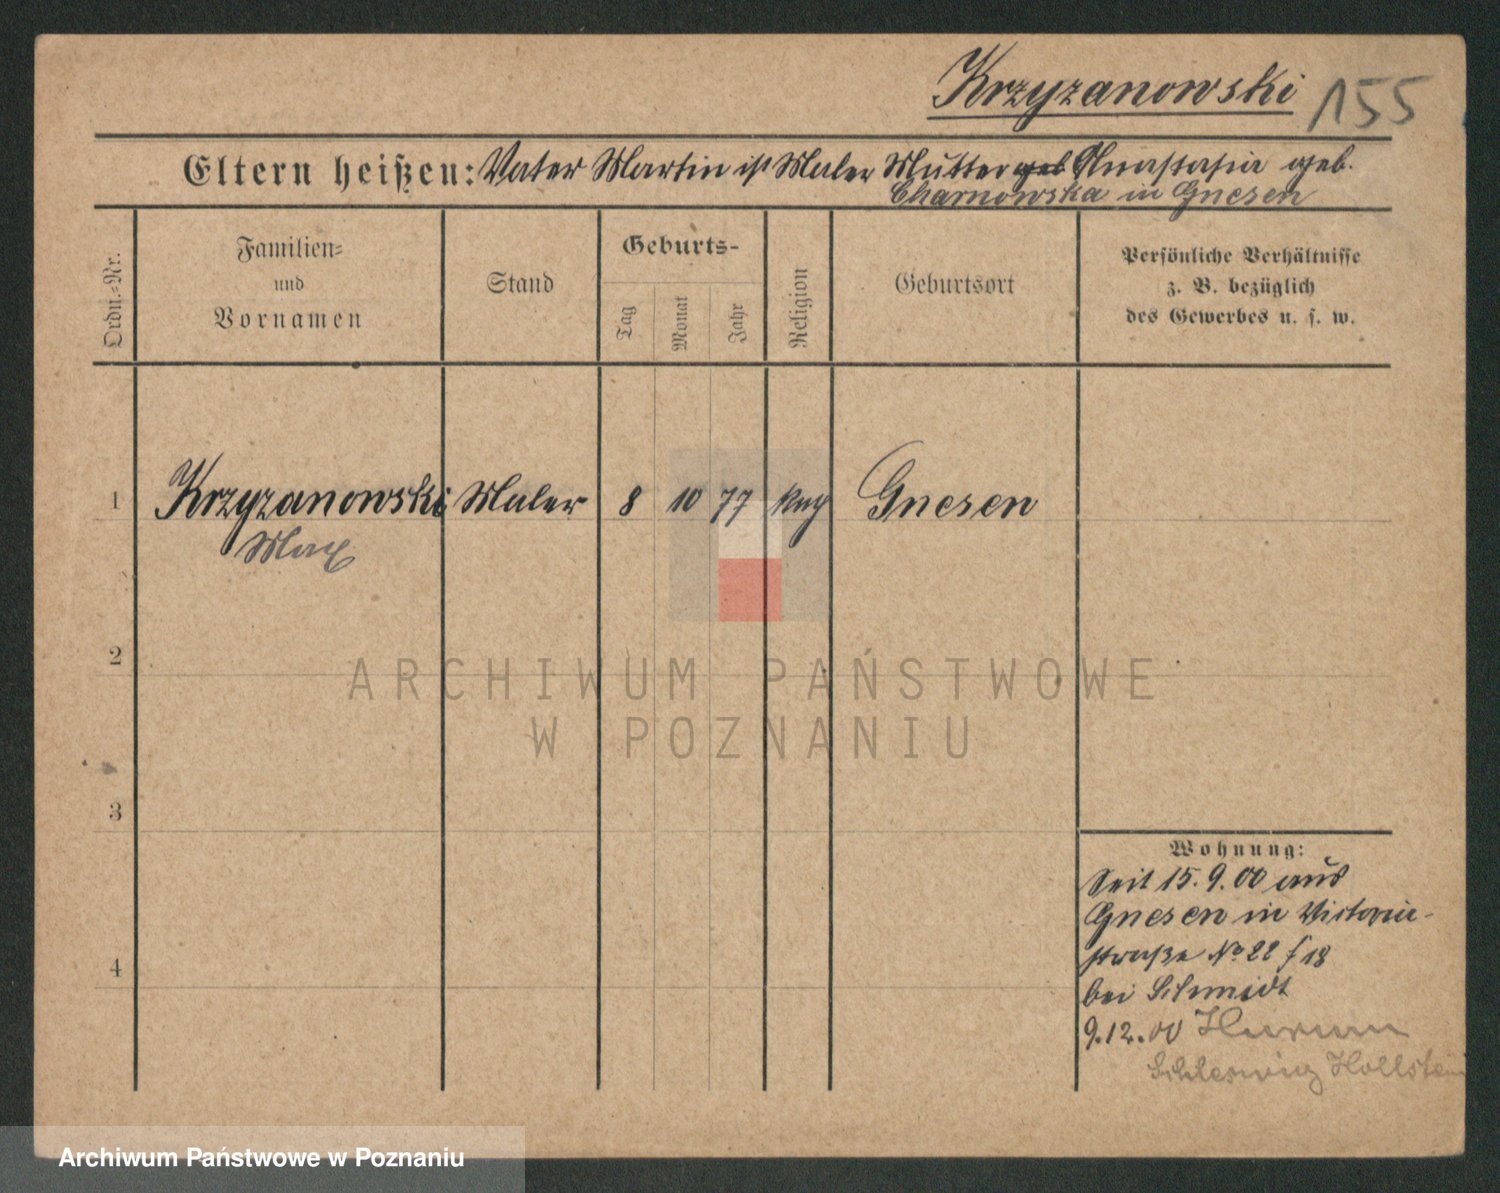 Krzyzanowski 155
Eltern heißen: Vater Martin ist Maler Mutter geb Anastasia geb.
Charnowska in Gnesen
Ordn.-Nr.
Familien- und Vornamen
Stand
Geburts-
Tag
Monat
Jahr
Religion
Geburtsort
Persönliche Verhältnisse
z. B. bezüglich
des Gewerbes u. s. w.
1 Krzyzanowski Maler 8 10 77 Gnesen
Max
2
3
4
Wohnung:
Seit 15. 9. 00 aus
Gnesen in Victoria-
straße No 22 f 18
bei Schmidt
9.12.00
Schleswig Hollstein
ARCHIWUM PAŃSTWOWE
W POZNANIU
Archiwum Państwowe w Poznaniu